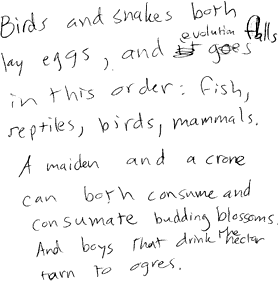 Birds and snakes both
lay eggs, and evolution falls goes
in this order: fish,
reptiles, birds, mammals.
A maiden and a crone
can both consume and
consumate budding blossoms.
And boys that drink the nectar
turn to ogres.